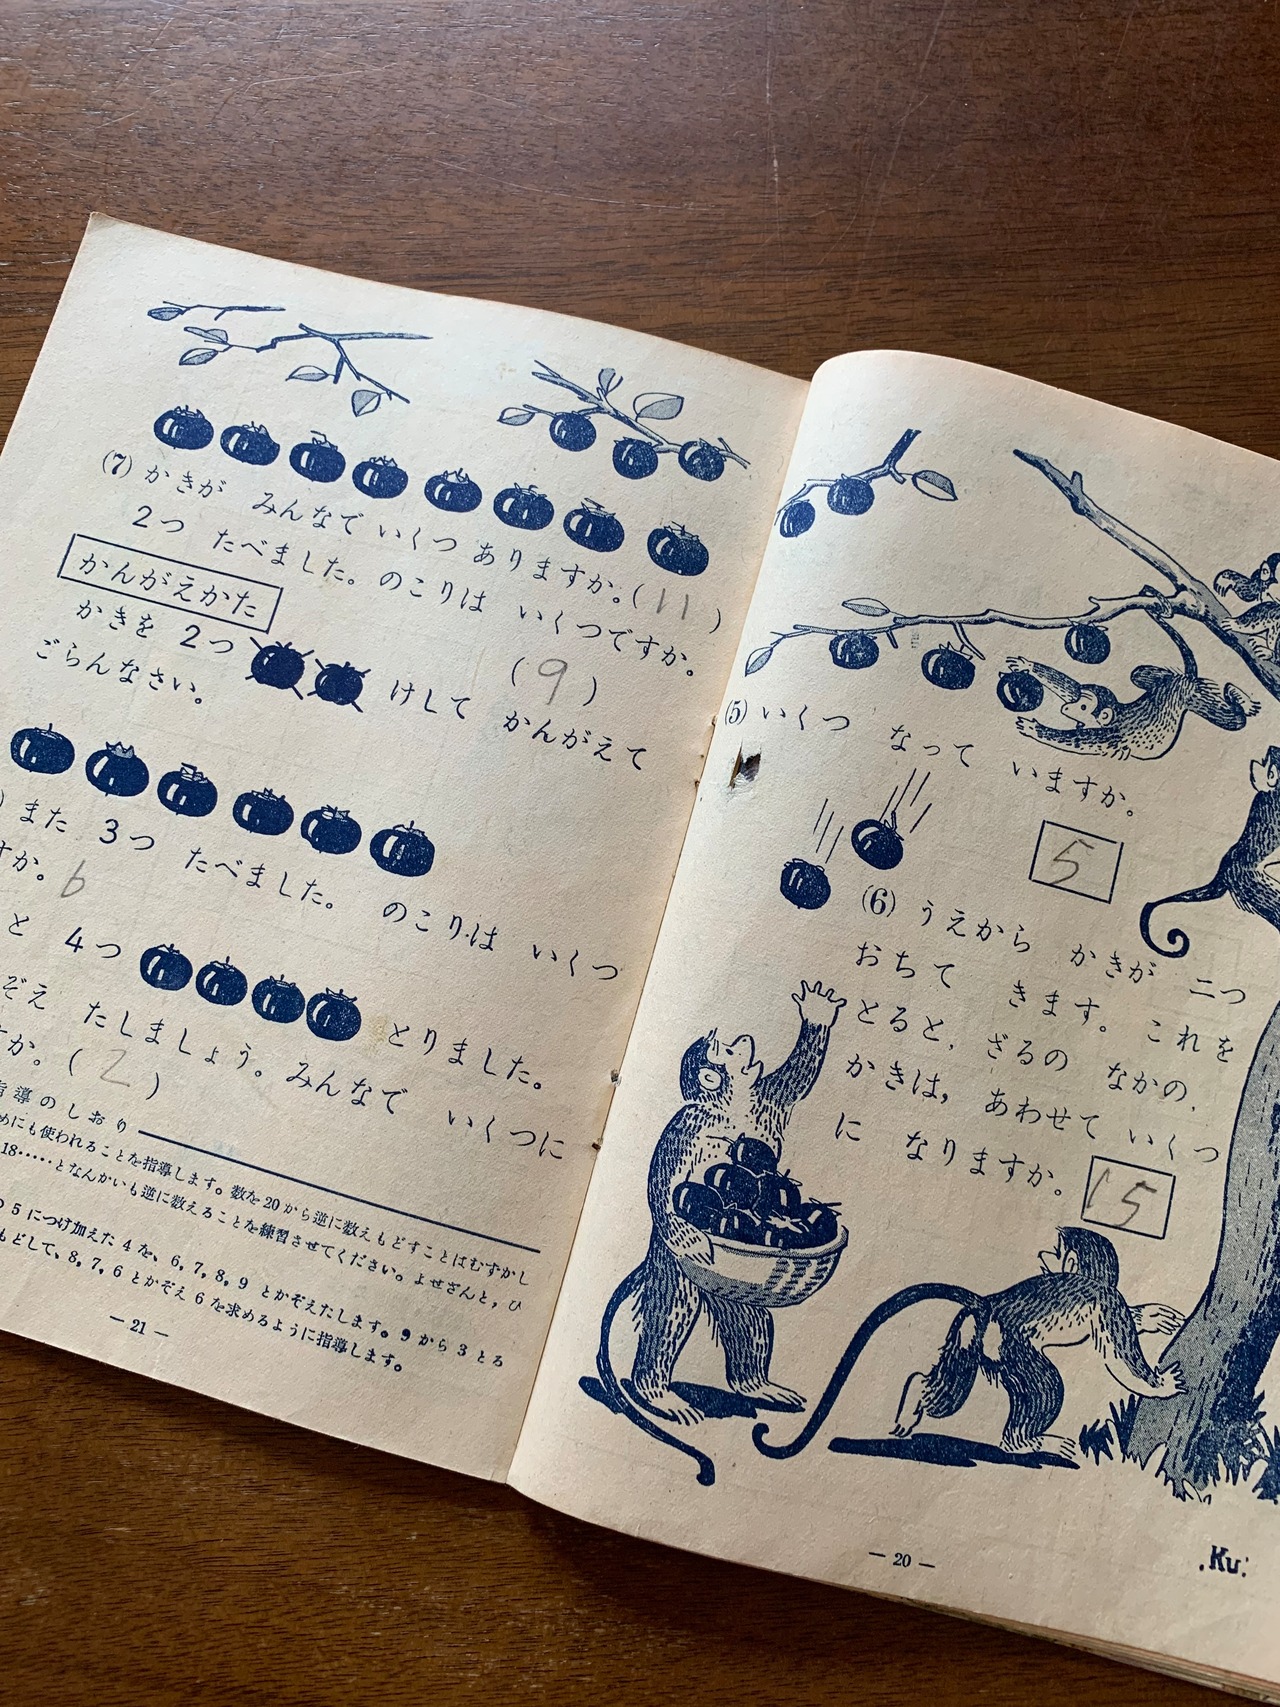 (7) かきが みんなで いくつ ありますか。(11)
2つ たべました。のこりは いくつですか。
(9)
かんがえかた
かきを 2つ けして かんがえて
ごらんなさい。
また 3つ たべました。 のこりは いくつ
すか。6
と 4つ とりました。
ぞえ たしましょう。みんなで いくつに
すか。(2)
指導のしおり
めにも使われることを指導します。数を20から逆に数えもどすことはむずかし
18……となんかいも逆に数えることを練習させてください。よせざんと，ひ
の5につけ加えた4を、6,7,8,9とかぞえたします。9から3とる
もどして、8,7,6とかぞえ6を求めるように指導します。
— 21 —
(5) いくつ なって いますか。
5
(6) うえから かきが 二つ
おちて きます。これを
とると，ざるの なかの，
かきは， あわせて いくつ
に なりますか。
15
— 20 —
Ku